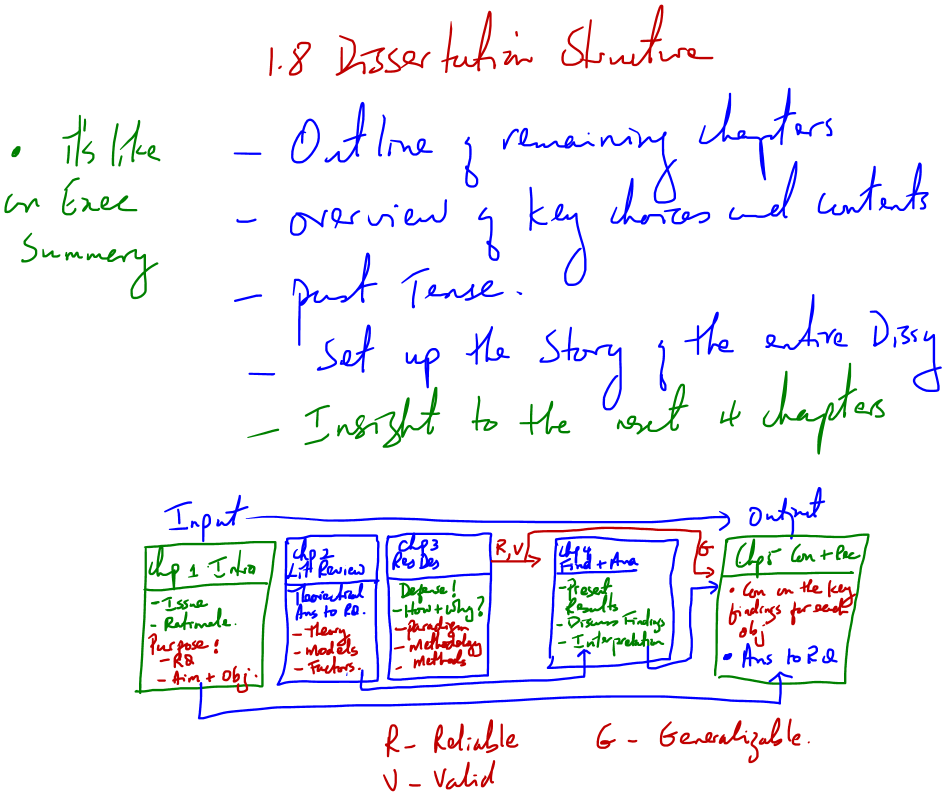 1.8 Dissertation Structure
• it's like
an Exec
Summery
- Outline of remaining chapters
- overview of key choices and contents
- past Tense.
- Set up the Story of the entire Dissy
- Insight to the rest 4 chapters
Input
Output
Chp 1 Intro
- Issue
- Rationale.
Purpose!
- RQ
- Aim + Obj.
Chp 2
Lit Review
Theoretical
Ans to RQ.
- Theory
- Models
- Factors.
Chp 3
Res Des
Defense!
- How + Why?
- Paradigm
- Methodology
- Methods
R, V
Chp 4
Find + Ana
- Present
Results
- Discuss Findings
- Interpretation
G
Chp 5 Con + Rec
• Con on the key
findings for each
obj
• Ans to RQ
R - Reliable
V - Valid
G - Generalizable.